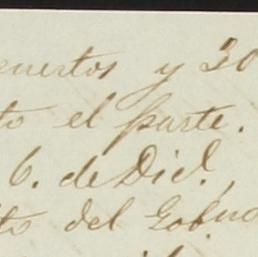 muertos y 30
to el parte.
6. de Dicl.,
to del Gobno